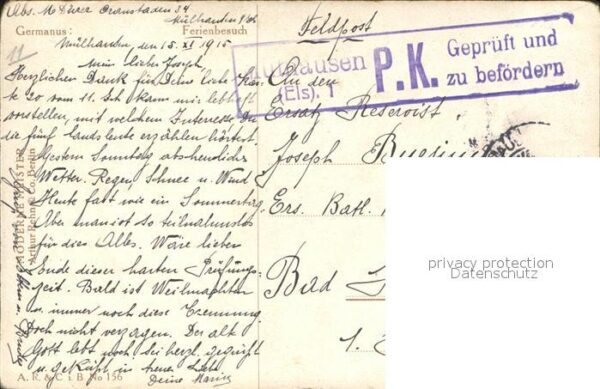 Abs. M
Mülhausen i/Els
Germanus: Ferienbesuch
Feldpost
Mülhausen, den 15. XI 1915
Mülhausen
(Els). 1
P.K. Geprüft und
zu befördern
Mein lieber Joseph
Herzlichen Dank für Deine liebe Kar
te 20 vom 11. Ich kann mir lebhaft
vorstellen, mit welchem Interesse Du
die fünf Landsleute erzählen hörtest.
Gestern Sonntag abscheuliches
Wetter. Regen, Schnee u. Wind
Heute fast wie ein Sommertag.
Aber man ist so teilnahmslos
für dies Alles. Wäre lieber
Ende dieser harten Prüfungs-
zeit. Bald ist Weihnachten
u. immer noch diese Trennung
Doch nicht verzagen. Der alt
Gott lebt noch. Sei herzl. gegrüßt
u. geküßt in treuer Liebe
Deine Marie
An den
Ersatz Reservist
Joseph
Ers. Batl.
Bad
1.
MODERNE MEISTER
Arthur Rehn & Co. Berlin
A. R. & C. i. B. No 156
privacy protection
Datenschutz